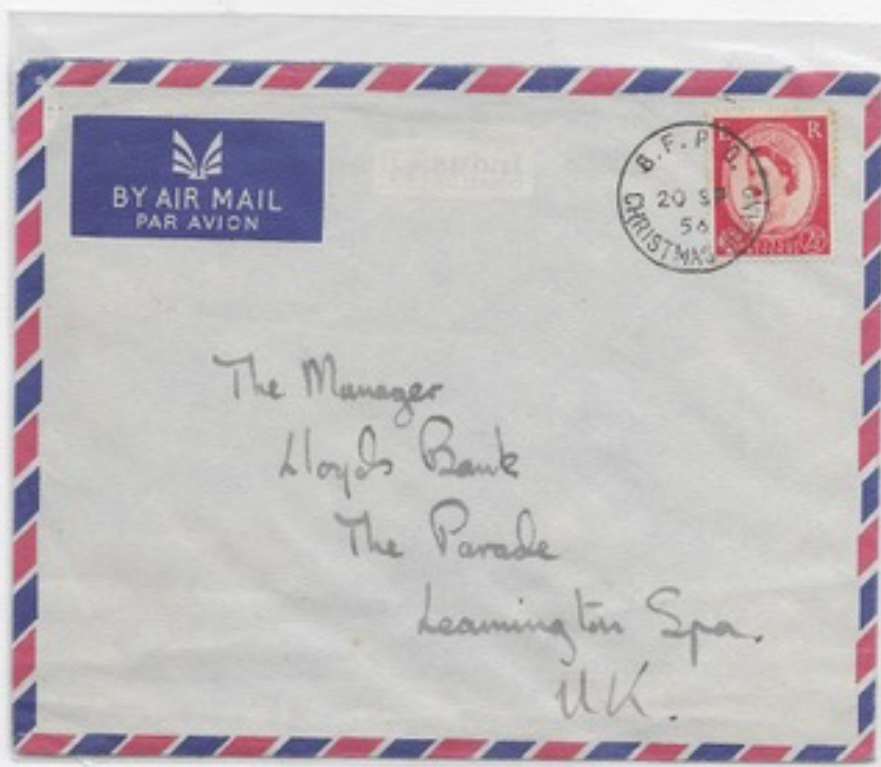 BY AIR MAIL
PAR AVION
E R
B.F.P.O.
20 SP
56
CHRISTMAS ISLAND
The Manager
Lloyds Bank
The Parade
Leamington Spa.
UK.